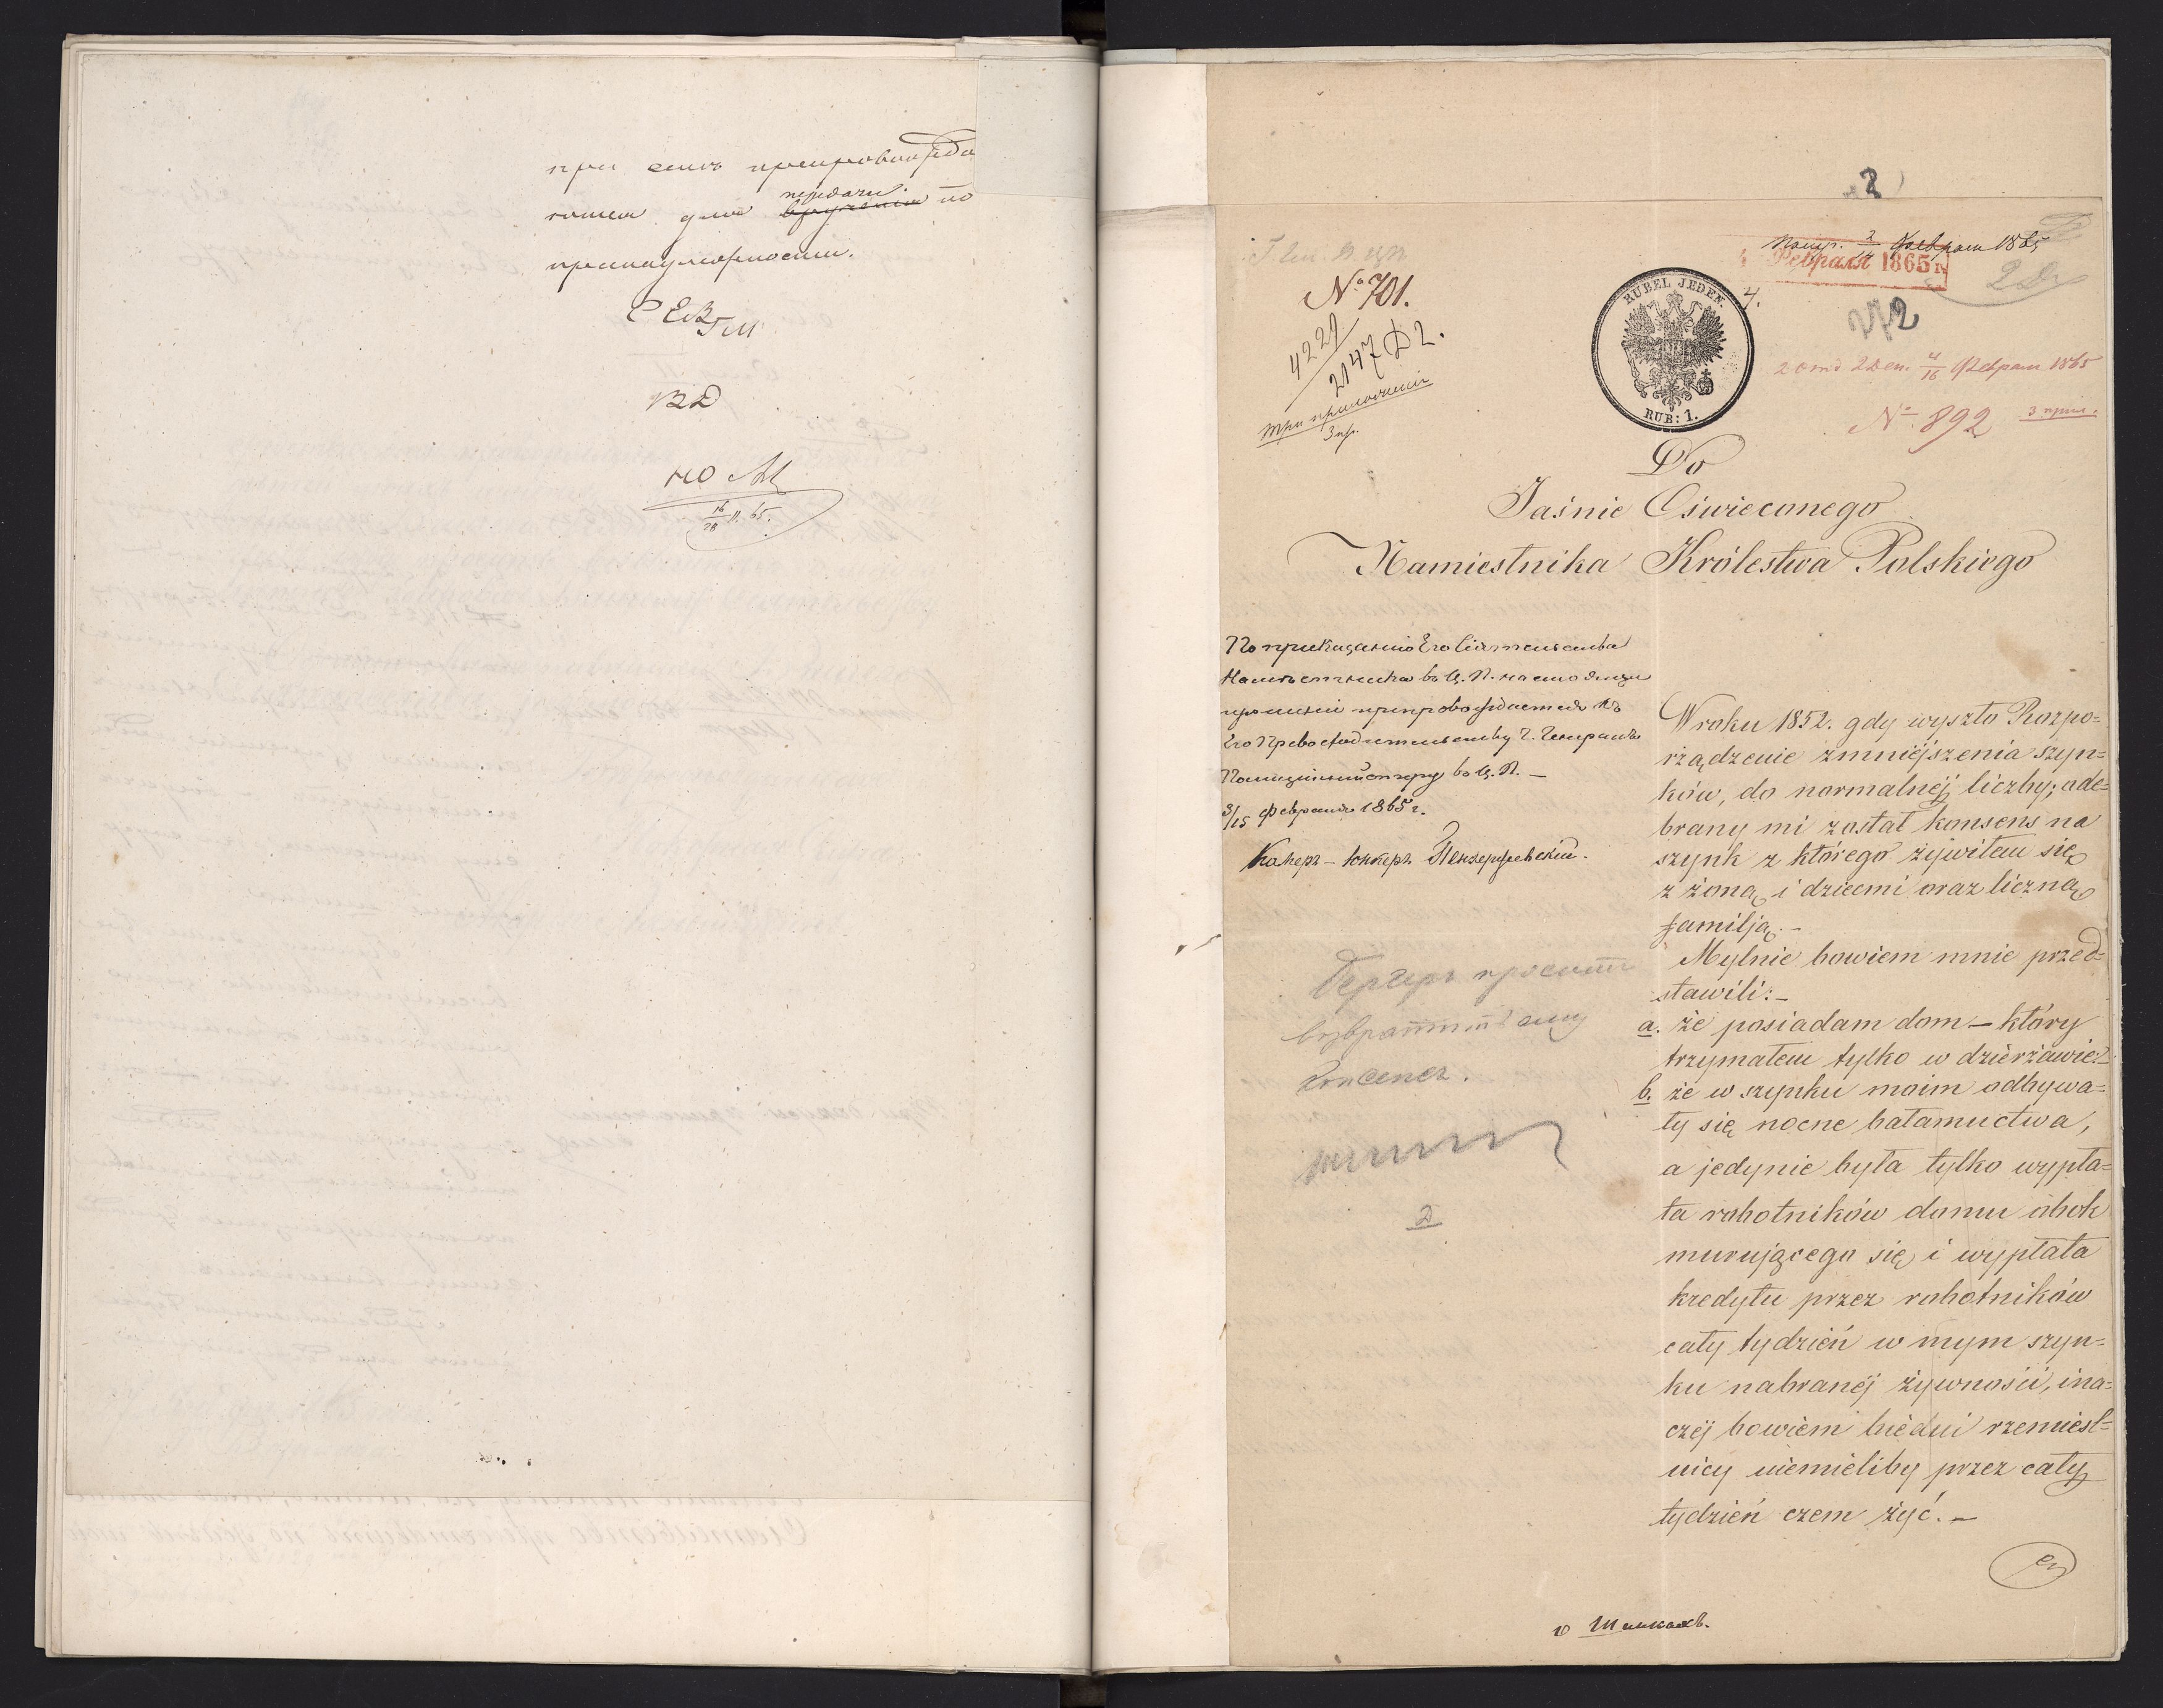 при семъ препровожда
передачи
вручения по
принадлежности.
ВД
16/28 II. 65.
2
№ 701.
4229
2147 Д 2.
три приложенія
3 пр.
RUBEL JEDEN.
RUB: 1.
Получ. 2/14 Февраля 1865
4. Февраля 1865 г.
2
4/16 Февраля 1865
№ 892 3 прил.
Do
Jaśnie Oświeconego
Namiestnika Królestwa Polskiego
По приказанію Его Сіятельства
Намѣстника въ Ц. П. настоящее
прошеніе препровождается къ
Его Превосходительству Г. Генералъ
Полиціймейстеру въ Ц. П. —
3/15 Февраля 1865 г.
Камеръ-Юнкеръ
W roku 1852. gdy wyszło Rozpo=
rządzenie zmniejszenia szyn=
ków, do normalnéj liczby; ode=
brany mi został konsens na
szynk z którego żywiłem się
z żoną i dziećmi oraz liczną
familją. —
Mylnie bowiem mnie przed=
stawili: —
a. że posiadam dom — który
trzymałem tylko w dzierżawie. —
b. że w szynku moim odbywa=
ły się nocne bałamuctwa,
a jedynie była tylko wypła=
ta robotników domu obok
murującego się i wypłata
kredytu przez robotników
cały tydzień w mym szyn=
ku nabranéj żywności, ina=
czéj bowiem biedni rzemieśl=
nicy niemieliby przez cały
tydzień czem żyć. —
проситъ
возвратить ему
консенсъ.
2
о Шинкахъ.